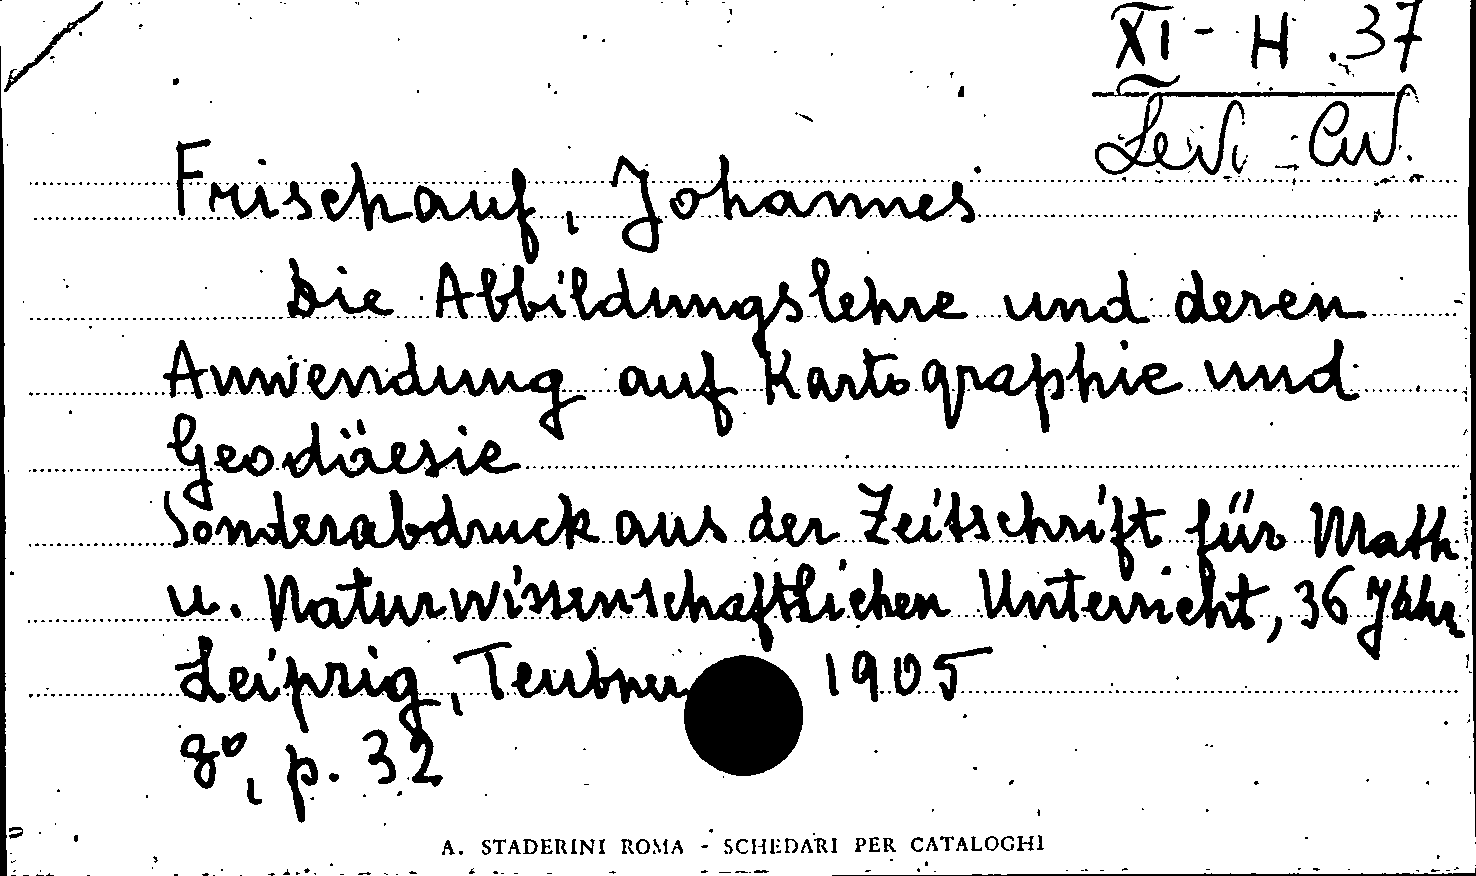 XI - H . 37
Levi - Civ.
Frischauf, Johannes
Die Abbildungslehre und deren
Anwendung auf Kartographie und
Geodäesie
Sonderabdruck aus der Zeitschrift für Math
u. Naturwissenschaftlichen Unterricht, 36 Jahr
Leipzig, Teubner 1905
8º, p. 32
A. STADERINI ROMA - SCHEDARI PER CATALOGHI